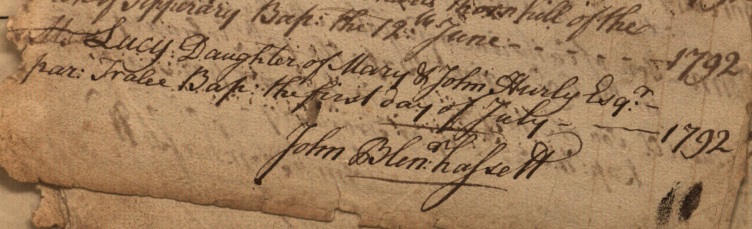 Tipperary Bap: the 12th June - - - - - 1792
Lucy Daughter of Mary & John Hurly Esqr. -
par: Tralee Bap: the first day of July - — 1792
John Blenrhassett